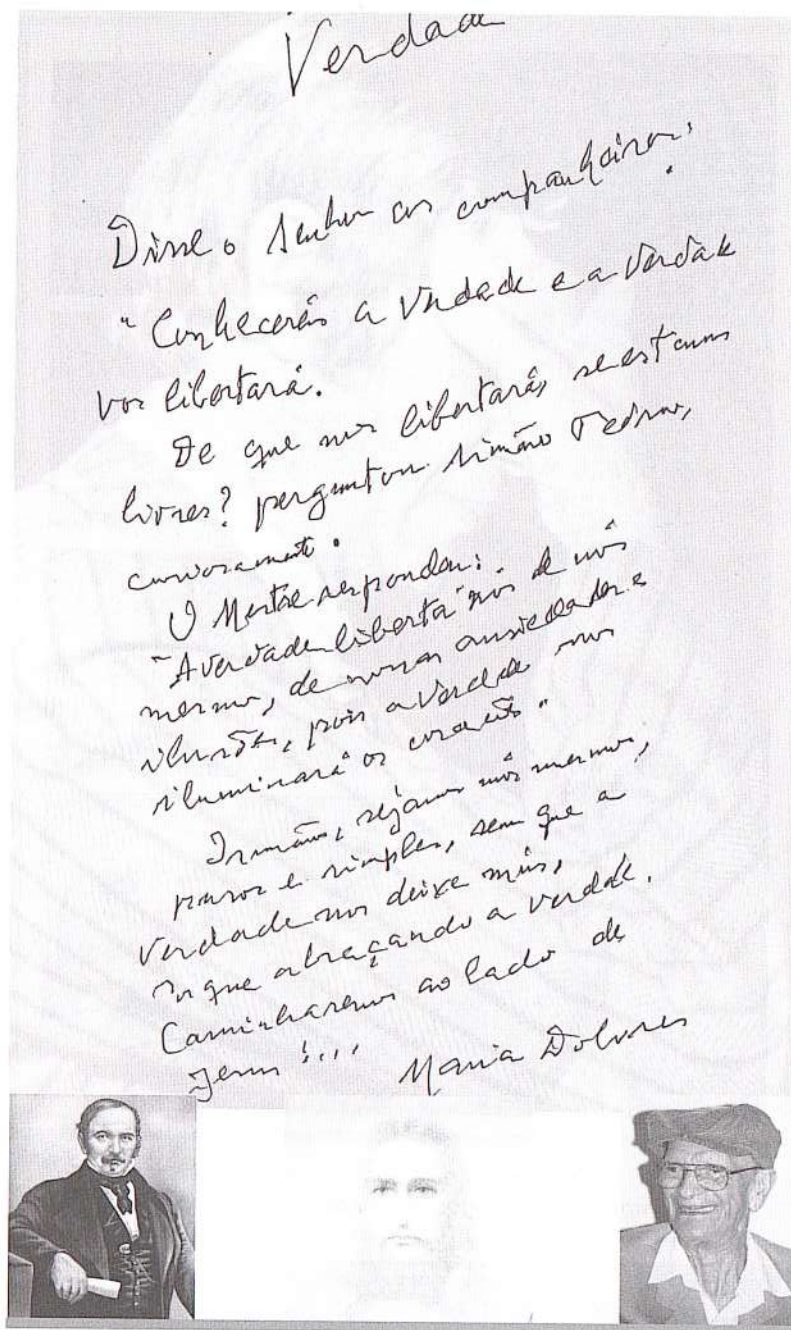 Verdade
Disse o Senhor aos companheiros:
"Conhecereis a Verdade e a Verdade
vos libertará.
De que nos libertará, se estamos
livres? perguntou Simão Pedro,
curiosamente.
O Mestre respondeu:
"A verdade liberta-nos de nós
mesmos, de nossas ansiedades e
ilusões, pois a Verdade nos
iluminará os corações."
Irmãos, sejamos nós mesmos,
puros e simples, sem que a
Verdade nos deixe
Porque abraçando a verdade,
Caminharemos ao lado de
Jesus!...
Maria Dolores